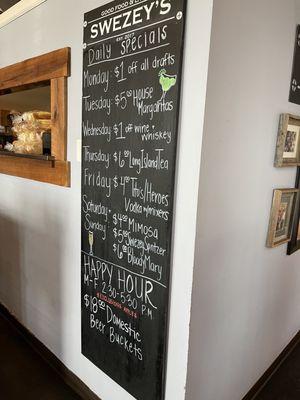 GOOD FOOD & D
SWEZEY'S
EST. 2017
Daily Specials
Monday: $1 off all drafts
Tuesday: $5 House
Margaritas
Wednesday: $1 off wine +
whiskey
Thursday: $6 Long Island Tea
Friday: $4 Tito's/Heroes
Vodka w/mixers
Saturday: $4 Mimosa
Sunday: $5 Swezey Spritzer
$6 Bloody Mary
HAPPY HOUR
M-F 2:30-5:30 P.M.
$18 Domestic
Beer Buckets